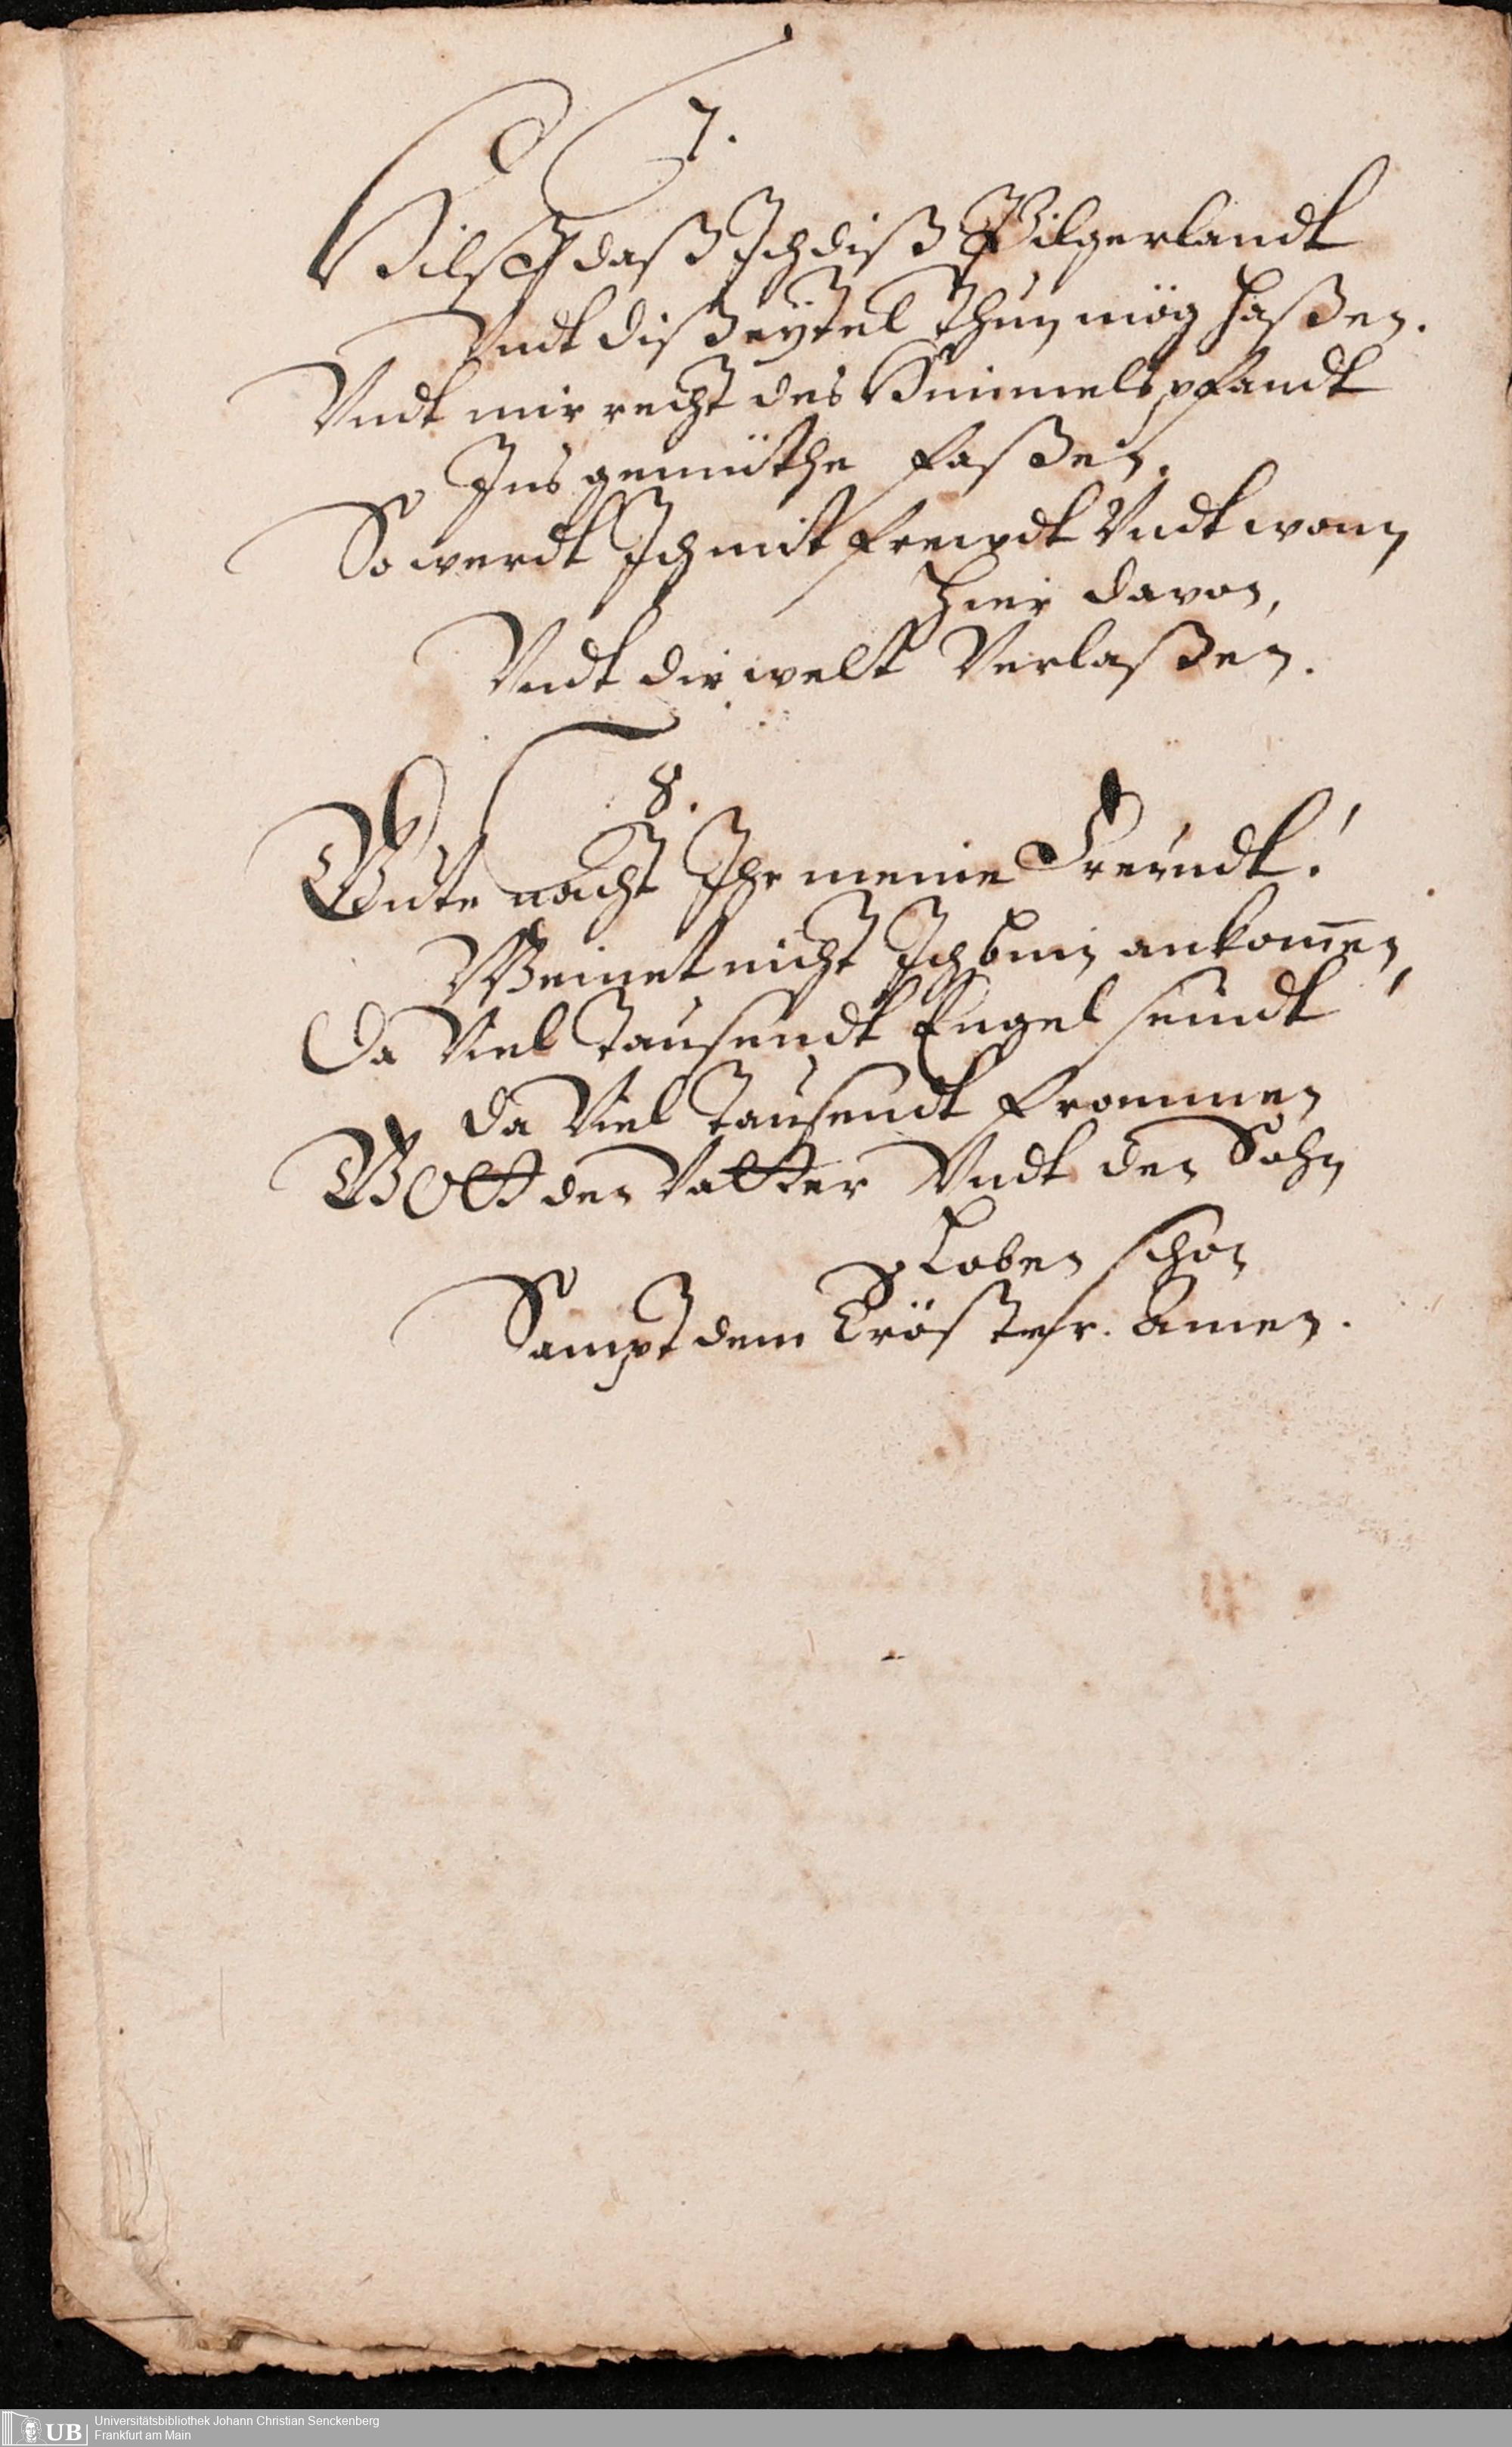 7.
Hilff daß Ich diß Pilgerlandt
Vndt diß eytel Thun mög haßen.
Vndt mir recht des Himmelspfandt
Ins gemüthe faßen.
So werdt Ich mit frewdt Vndt wonn
hier davon,
Vndt die welt Verlaßen.
8.
Gute nacht Ihr meine Freundt!
Weinet nicht Ich bin ankom̄en,
Da Viel Tausendt Engel seindt
da Viel Tausendt frommen
GOtt den Vatter Vndt den Sohn
Loben schon
Sampt dem Tröster. Amen.
UB
Universitätsbibliothek Johann Christian Senckenberg
Frankfurt am Main